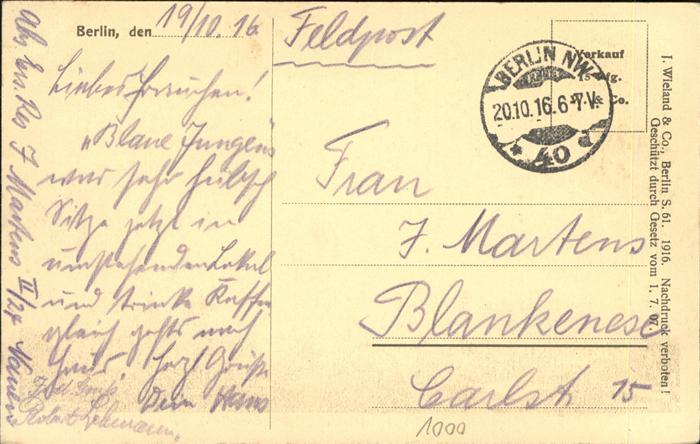 Berlin, den 19/10. 16
Liebes Frauchen!
"Blaue Jungens"
war sehr hübsch
Sitze jetzt in
umstehenden Lokal
und trinke Kaffee
gleich gehts nach
Haus. Herzl Grüße
Dein Hans
Robert Lehmann.
Abs. J Martens II/24
Feldpost
BERLIN NW
20.10.16.6-7V.
* 40 d
Verkauf
15 Pfg.
W. & Co.
Frau
J. Martens
Blankenese
Carlst 15
1000
I. Wieland & Co., Berlin S. 61. 1916. Nachdruck verboten!
Geschützt durch Gesetz vom 1. 7. 07.